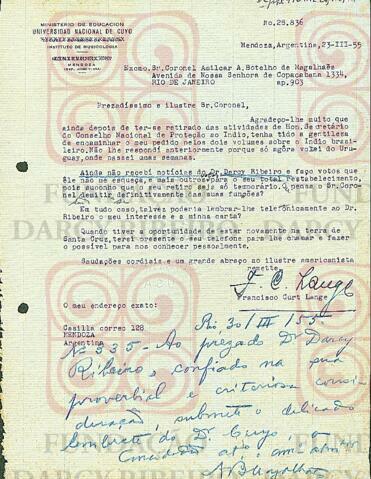 MINISTERIO DE EDUCACION
UNIVERSIDAD NACIONAL DE CUYO
INSTITUTO DE MUSICOLOGIA
MENDOZA
No.25,836
Mendoza, Argentina, 23-III-55
Excmo. Sr. Coronel Amilcar A. Botelho de Magalhães
Avenida de Nossa Senhora de Copacabana 1334,
RIO DE JANEIRO ap.903
Prezadíssimo e ilustre Sr.Coronel,
Agradeço-lhe muito que
ainda depois de ter-se retirado das atividades de Hon.Secretário
do Conselho Nacional de Proteção ao Índio, tenha tido a gentileza
de encaminhar o meu pedido nelos dois volumes sobre o Índio brasi-
leiro. Não lhe respondi anteriormente porque só agora volvi do Uru-
guay, onde passei umas semanas.
Ainda não recebi notícias do Dr. Darcy Ribeiro e faço votos que
êle não me esqueça, e mais outros para o seu total restabelecimento,
pois suponho que seu retiro seja só temporario. O pensa o Sr.Coro-
nel demitir definitivamente das suas funções?
Em tudo caso, talvez poderia lembrar-lhe telefônicamente ao Dr.
Ribeiro o meu interesse e a minha carta?
Quando tiver a oportunidade de estar novamente na terra de
Santa Cruz, terei presente o seu telefone para lhe chamar e fazer o
possivel para nos conhecer pessoalmente.
Saudações cordiais e um grande abraço ao ilustre americanista
remette
F. C. Lange
Francisco Curt Lange
O meu endereço exato:
Casilla correo 128
MENDOZA
Argentina
Rio, 30/III/55
Nº 335 - Ao prezado Dr Darcy
Ribeiro, confiado na sua
proverbial e criteriosa consi-
deração, submeto o delicado
lembrete do Dr. Curt, o
FUNDAÇÃO
DARCY RIBEIRO